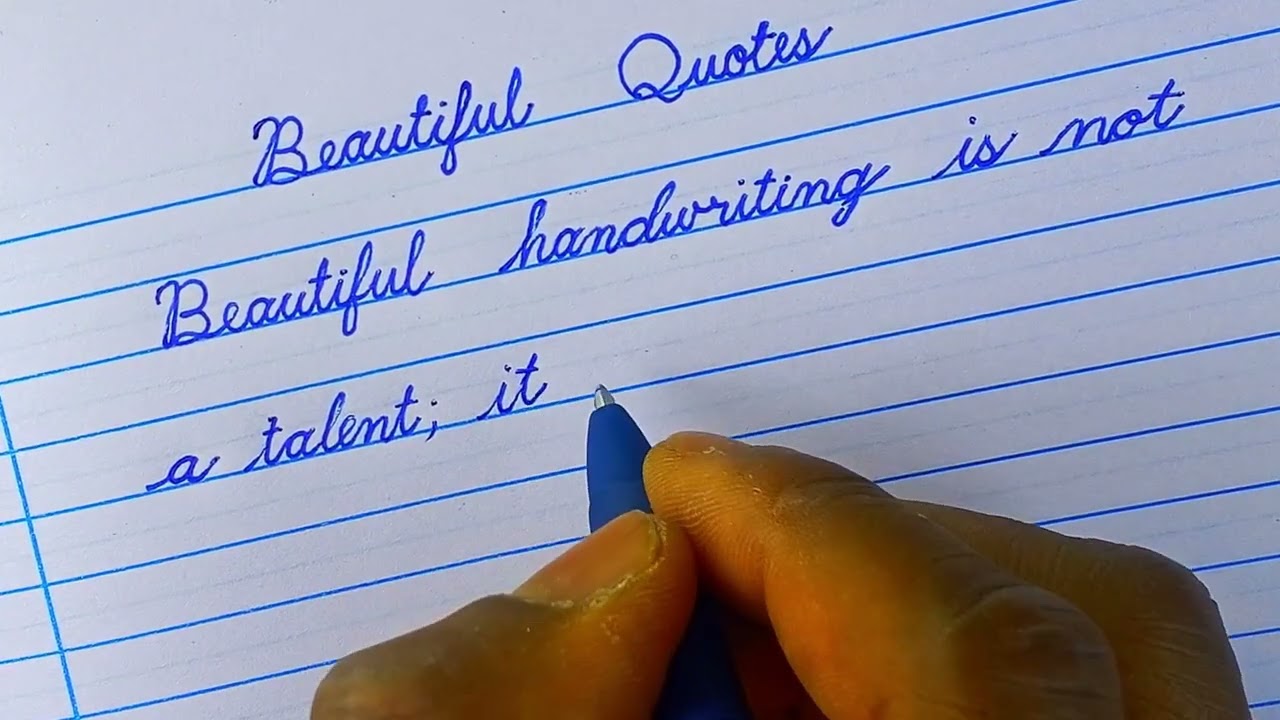 Beautiful Quotes
Beautiful handwriting is not
a talent; it